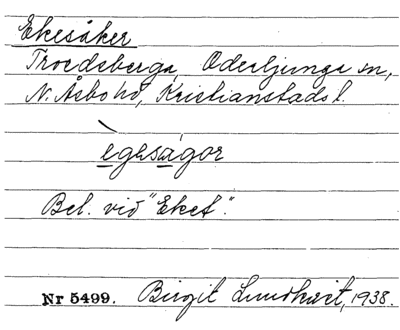 Ekesåker
Troedsberga, Oderljunga sn,
N. Åsbo hd, Kristianstads l.
ègeságor
Bel. vid "Eket".
Nr 5499. Birgit Lundkvist, 1938.